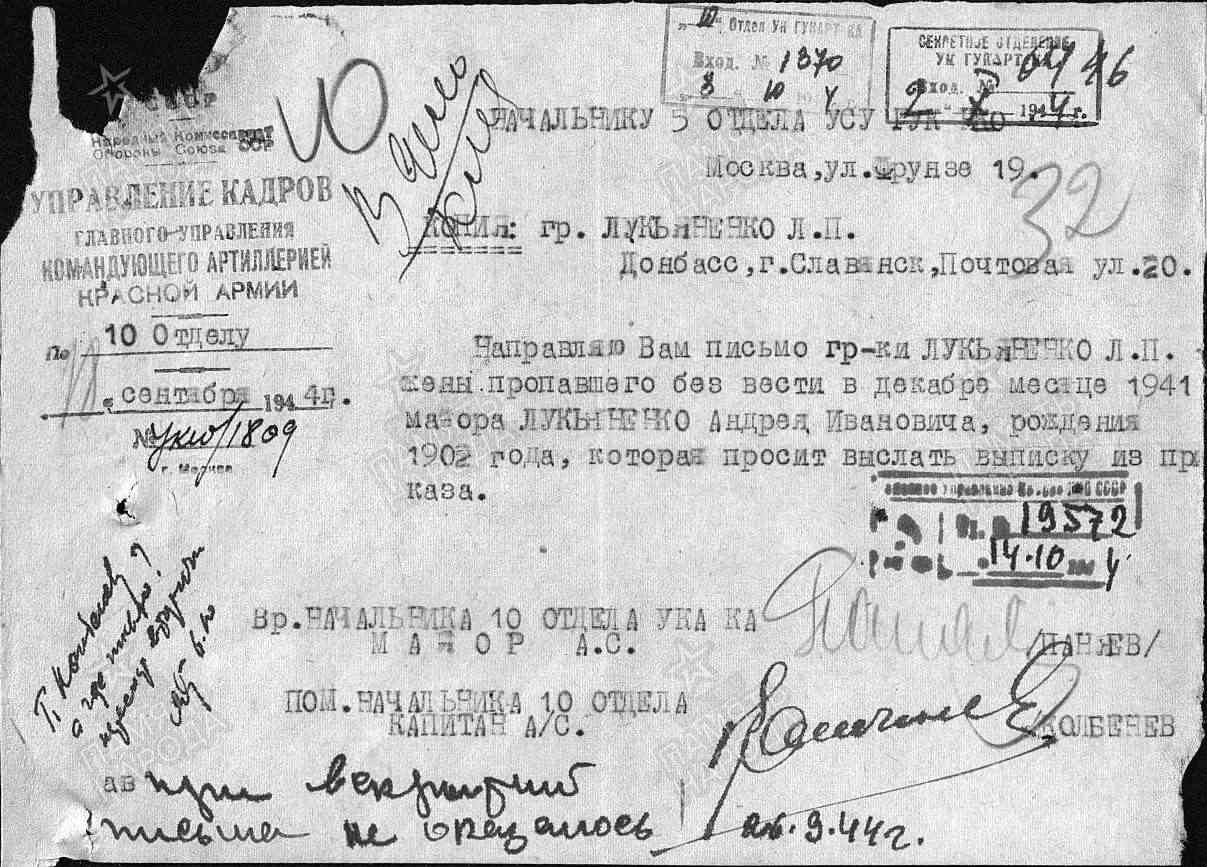 "III" Отдел УК ГУКАРТ КА
Вход. № 1370
8 10 4
СЕКРЕТНОЕ ОТДЕЛЕНИЕ
УК ГУКАРТ КА
Вход. №
2 X 1944 г.
СССР
Народный Комиссариат
Обороны Союза ССР
УПРАВЛЕНИЕ КАДРОВ
ГЛАВНОГО УПРАВЛЕНИЯ
КОМАНДУЮЩЕГО АРТИЛЛЕРИЕЙ
КРАСНОЙ АРМИИ
По 10 Отделу
сентября 1944г.
№ УК10/1809
г. Москва
НАЧАЛЬНИКУ 5 ОТДЕЛА УСУ ГУК НКО
Москва,ул.Фрунзе 19.
32
КОПИЯ: гр. ЛУКЬЯНЕНКО Л.П.
Донбасс,г.Славянск,Почтовая ул.20.
Направляю Вам письмо гр-ки ЛУКЬЯНЕНКО Л.П.
жены пропавшего без вести в декабре месяце 1941
майора ЛУКЬЯНЕНКО Андрея Ивановича, рождения
1902 года, которая просит выслать выписку из при
каза.
19572
14.10 4
Вр.НАЧАЛЬНИКА 10 ОТДЕЛА УКА КА
МАЙОР А.С. /ПАНЯЕВ/
ПОМ.НАЧАЛЬНИКА 10 ОТДЕЛА
КАПИТАН А/С. /КОЛБЕНЕВ
ав
при вскрытии
письма не оказалось
26.9.44г.